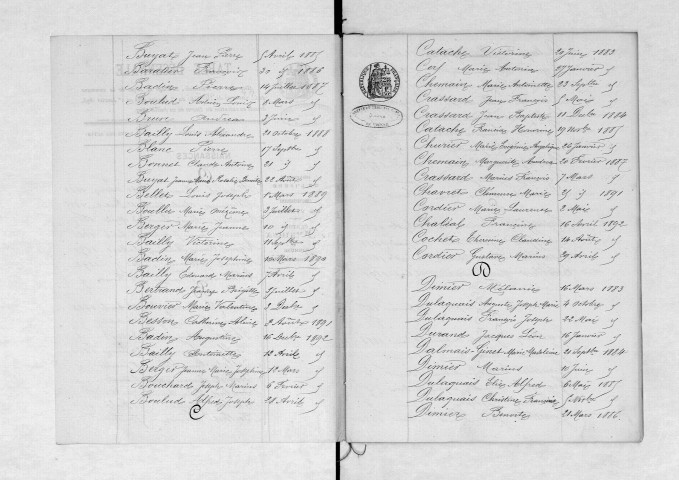 Buyat Jean Pierre 5 Avril 1885
Baratier François 20 " 1886
Badin Pierre 14 Juillet 1887
Boulud Antoine Louis 8 Mars "
Brun Andréa 3 Juin "
Bailly Louis Alexandre 21 Octobre 1888
Blanc Pierre 17 Septbre "
Bonnet Claude Antoine 21 " "
Buyat Jeanne Marie Rosalie 22 Août "
Bellet Louis Joseph 8 Mars 1889
Boullu Marie 3 Juillet "
Berger Marie Jeanne 10 " "
Bailly Victorine 11 Septbre "
Badin Marie Joséphine 10 Mars 1890
Bailly Edouard Marius 7 Avril "
Bertrand Brigitte 5 Juillet "
Bouvier Marie Valentine 2 Decbre "
Besson Catherine 9 Août 1891
Badin Augustine 16 Decbre 1892
Bailly Antoinette 12 Avril "
Berger Jeanne Marie Joséphine 12 Mars "
Bouchard Joseph Marius 6 Fevrier "
Boulud Alfred Joseph 28 Avril "
C
Catache Victorine 20 Juin 1883
Cerf Marie Antonia 27 Janvier "
Chemain Marie Antoinette 23 Septbre "
Crassard Jean François 5 Mai "
Crassard Jean Baptiste 11 Decbre 1884
Catache 29 Novbre 1885
Cheurier Marie Eugénie Angélique 26 Janvier "
Chemain Marguerite 20 Fevrier 1887
Crassard Marius François 7 Mars "
Chevret Clémence Marie 21 " 1891
Cordier Marie Laurence 2 Mai "
Chaléat Françoise 16 Avril 1892
Cochet Claudine 14 Août "
Cordier Gustave Marius 29 Avril "
D
Dimier Mélanie 16 Mars 1883
Dulaquais Auguste Joseph Marie 4 Octobre "
Dulaquais François Joseph 22 Mai "
Durand Jacques Léon 16 Janvier "
Dalmais-Ginet Marie Madeleine 21 Septbre 1884
Dimier Marius 10 Juin "
Dulaquais Elie Alfred 6 Mai 1885
Dulaquais Christine Françoise 5 Novbre "
Dimier Benoite 21 Mars 1886